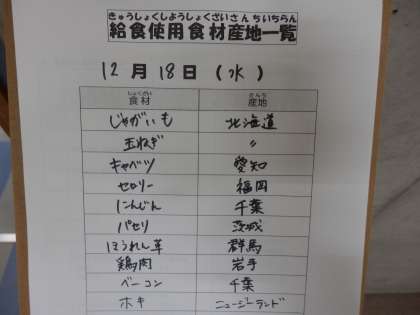 きゅうしょくしようしょくざいさんちいちらん
給食使用食材産地一覧
12月18日(水)
しょくざい さんち
食材 産地
じゃがいも 北海道
玉ねぎ 〃
キャベツ 愛知
セロリー 福岡
にんじん 千葉
パセリ 茨城
ほうれん草 群馬
鶏肉 岩手
ベーコン 千葉
ホキ ニュージーランド